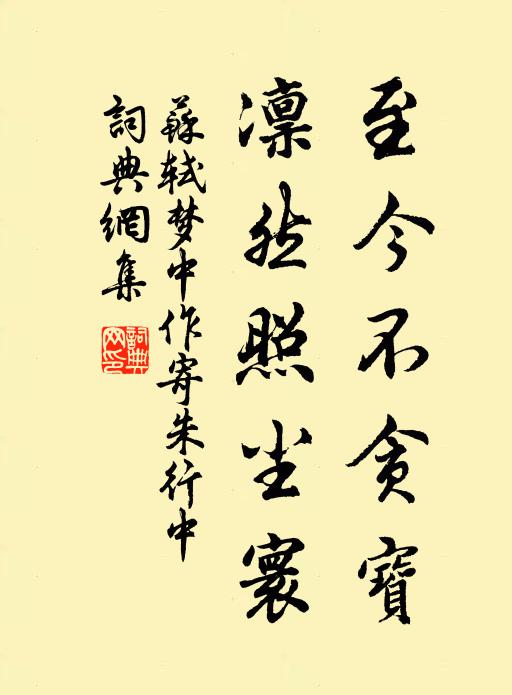 至今不貪寶
凛然照尘寰
蘇轼梦中作寄朱行中
詞典網集
詞典網印